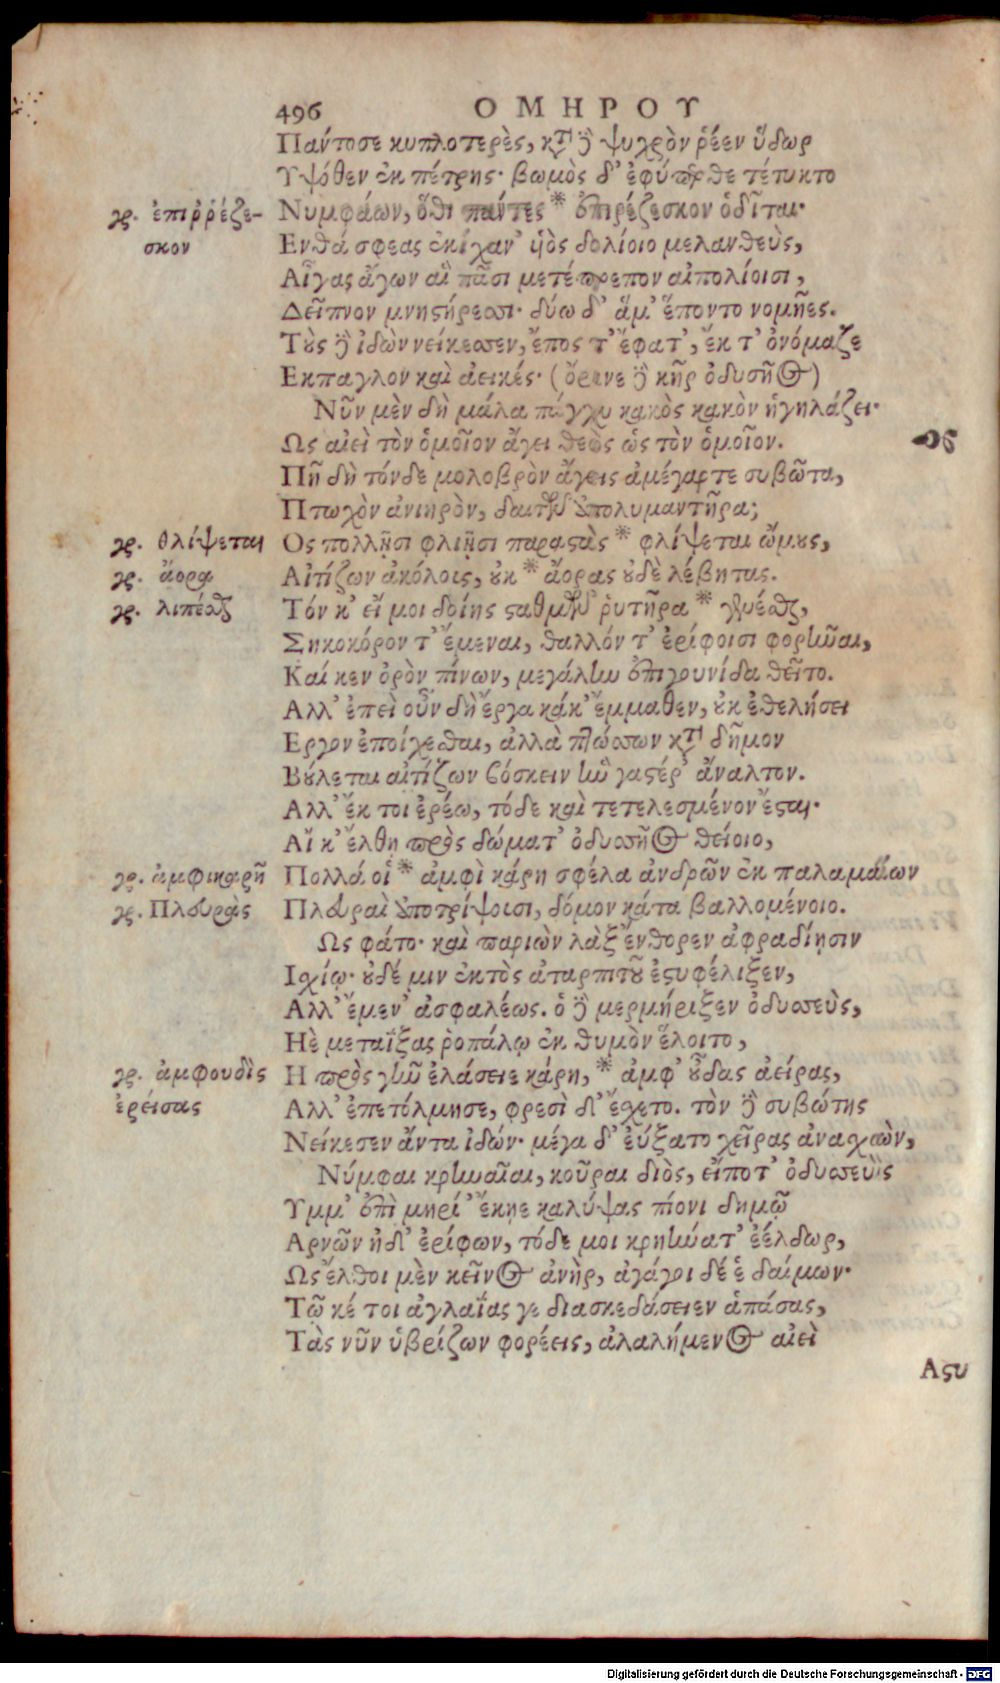 496 ΟΜΗΡΟΥ
Πάντοσε κυκλοτερὲς, κτ̀ δ̓ ψυχρὸν ῥέεν ὕδωρ
Υψόθεν ἐκ πέτρης· βωμὸς δ' ἐφύπερθε τέτυκτο
γρ. ἐπιῤῥέζε-
σκον
Νυμφάων, ὅθι πάντες * ἐπιρέζεσκον ὁδῖται·
Ενθά σφεας ἐκίχαν' ὑιὸς δολίοιο μελανθεὺς,
Αἶγας ἄγων αἳ πᾶσι μετέπρεπον αἰπολίοισι,
Δεῖπνον μνηστήρεσσι· δύω δ' ἅμ' ἕποντο νομῆες.
Τοὺς δὲ ἰδὼν νείκεσσεν, ἔπος τ' ἔφατ', ἔκ τ' ὀνόμαζε
Εκπαγλον καὶ ἀεικές· (ὄρινε δὲ κῆρ ὀδυσῆος)
Νῦν μὲν δὴ μάλα πάγχυ κακὸς κακὸν ἡγηλάζει·
Ως αἰεὶ τὸν ὁμοῖον ἄγει θεὸς ὡς τὸν ὁμοῖον.
Πῆ δὴ τόνδε μολοβρὸν ἄγεις ἀμέγαρτε συβῶτα,
Πτωχὸν ἀνιηρὸν, δαιτῶν ἀπολυμαντῆρα;
γρ. θλίψεται
Ος πολλῇσι φλιῇσι παραστὰς * φλίψεται ὤμους,
γρ. ἄορα
Αἰτίζων ἀκόλοις, οὐκ * ἄορας οὐδὲ λέβητας.
γρ. λιπέσθαι
Τόν κ' εἴ μοι δοίης σταθμῶν ῥυτῆρα * γενέσθαι,
Σηκοκόρον τ' ἔμεναι, θαλλόν τ' ἐρίφοισι φορῆναι,
Καί κεν ὀρὸν πίνων, μεγάλην ἐπιγουνίδα θεῖτο.
Αλλ' ἐπεὶ οὖν δὴ ἔργα κάκ' ἔμμαθεν, οὐκ ἐθελήσει
Εργον ἐποίχεσθαι, ἀλλὰ πτώσσων κτ̀ δῆμον
Βούλεται αἰτίζων βόσκειν ἣν γαστέρ' ἄναλτον.
Αλλ' ἔκ τοι ἐρέω, τόδε καὶ τετελεσμένον ἔσται·
Αἴ κ' ἔλθη πρὸς δώματ' ὀδυσσῆος θείοιο,
γρ. ἀμφικαρῆ
Πολλά οἱ * ἀμφὶ κάρη σφέλα ἀνδρῶν ἐκ παλαμάων
γρ. Πλευρὰς
Πλευραὶ ἀποτρίψοισι, δόμον κάτα βαλλομένοιο.
Ως φάτο· καὶ παριὼν λὰξ ἔνθορεν ἀφραδίησιν
Ισχίῳ· οὐδέ μιν ἐκτὸς ἀταρπιτοῦ ἐστυφέλιξεν,
Αλλ' ἔμεν' ἀσφαλέως. ὁ δὲ μερμήριξεν ὀδυσσεὺς,
Ηὲ μεταΐξας ῥοπάλῳ ἐκ θυμὸν ἕλοιτο,
γρ. ἀμφουδὶς
ἐρείσας
Η πρὸς γῆν ἐλάσειε κάρη, * ἀμφ' οὖδας ἀείρας,
Αλλ' ἐπετόλμησε, φρεσὶ δ' ἔσχετο. τὸν δὲ συβώτης
Νείκεσεν ἄντα ἰδών· μέγα δ' εὔξατο χεῖρας ἀνασχὼν,
Νύμφαι κρηναῖαι, κοῦραι διὸς, εἴποτ' ὀδυσσεὺς
Υμμ' ἐπὶ μηρί' ἔκηε καλύψας πίονι δημῷ
Αρνῶν ἠδ' ἐρίφων, τόδε μοι κρηήνατ' ἐέλδωρ,
Ως ἔλθοι μὲν κεῖνος ἀνὴρ, ἀγάγοι δέ ἑ δαίμων·
Τῶ κέ τοι ἀγλαΐας γε διασκεδάσειεν ἁπάσας,
Τὰς νῦν ὑβρίζων φορέεις, ἀλαλήμενος αἰεὶ
Αστυ
Digitalisierung gefördert durch die Deutsche Forschungsgemeinschaft - DFG